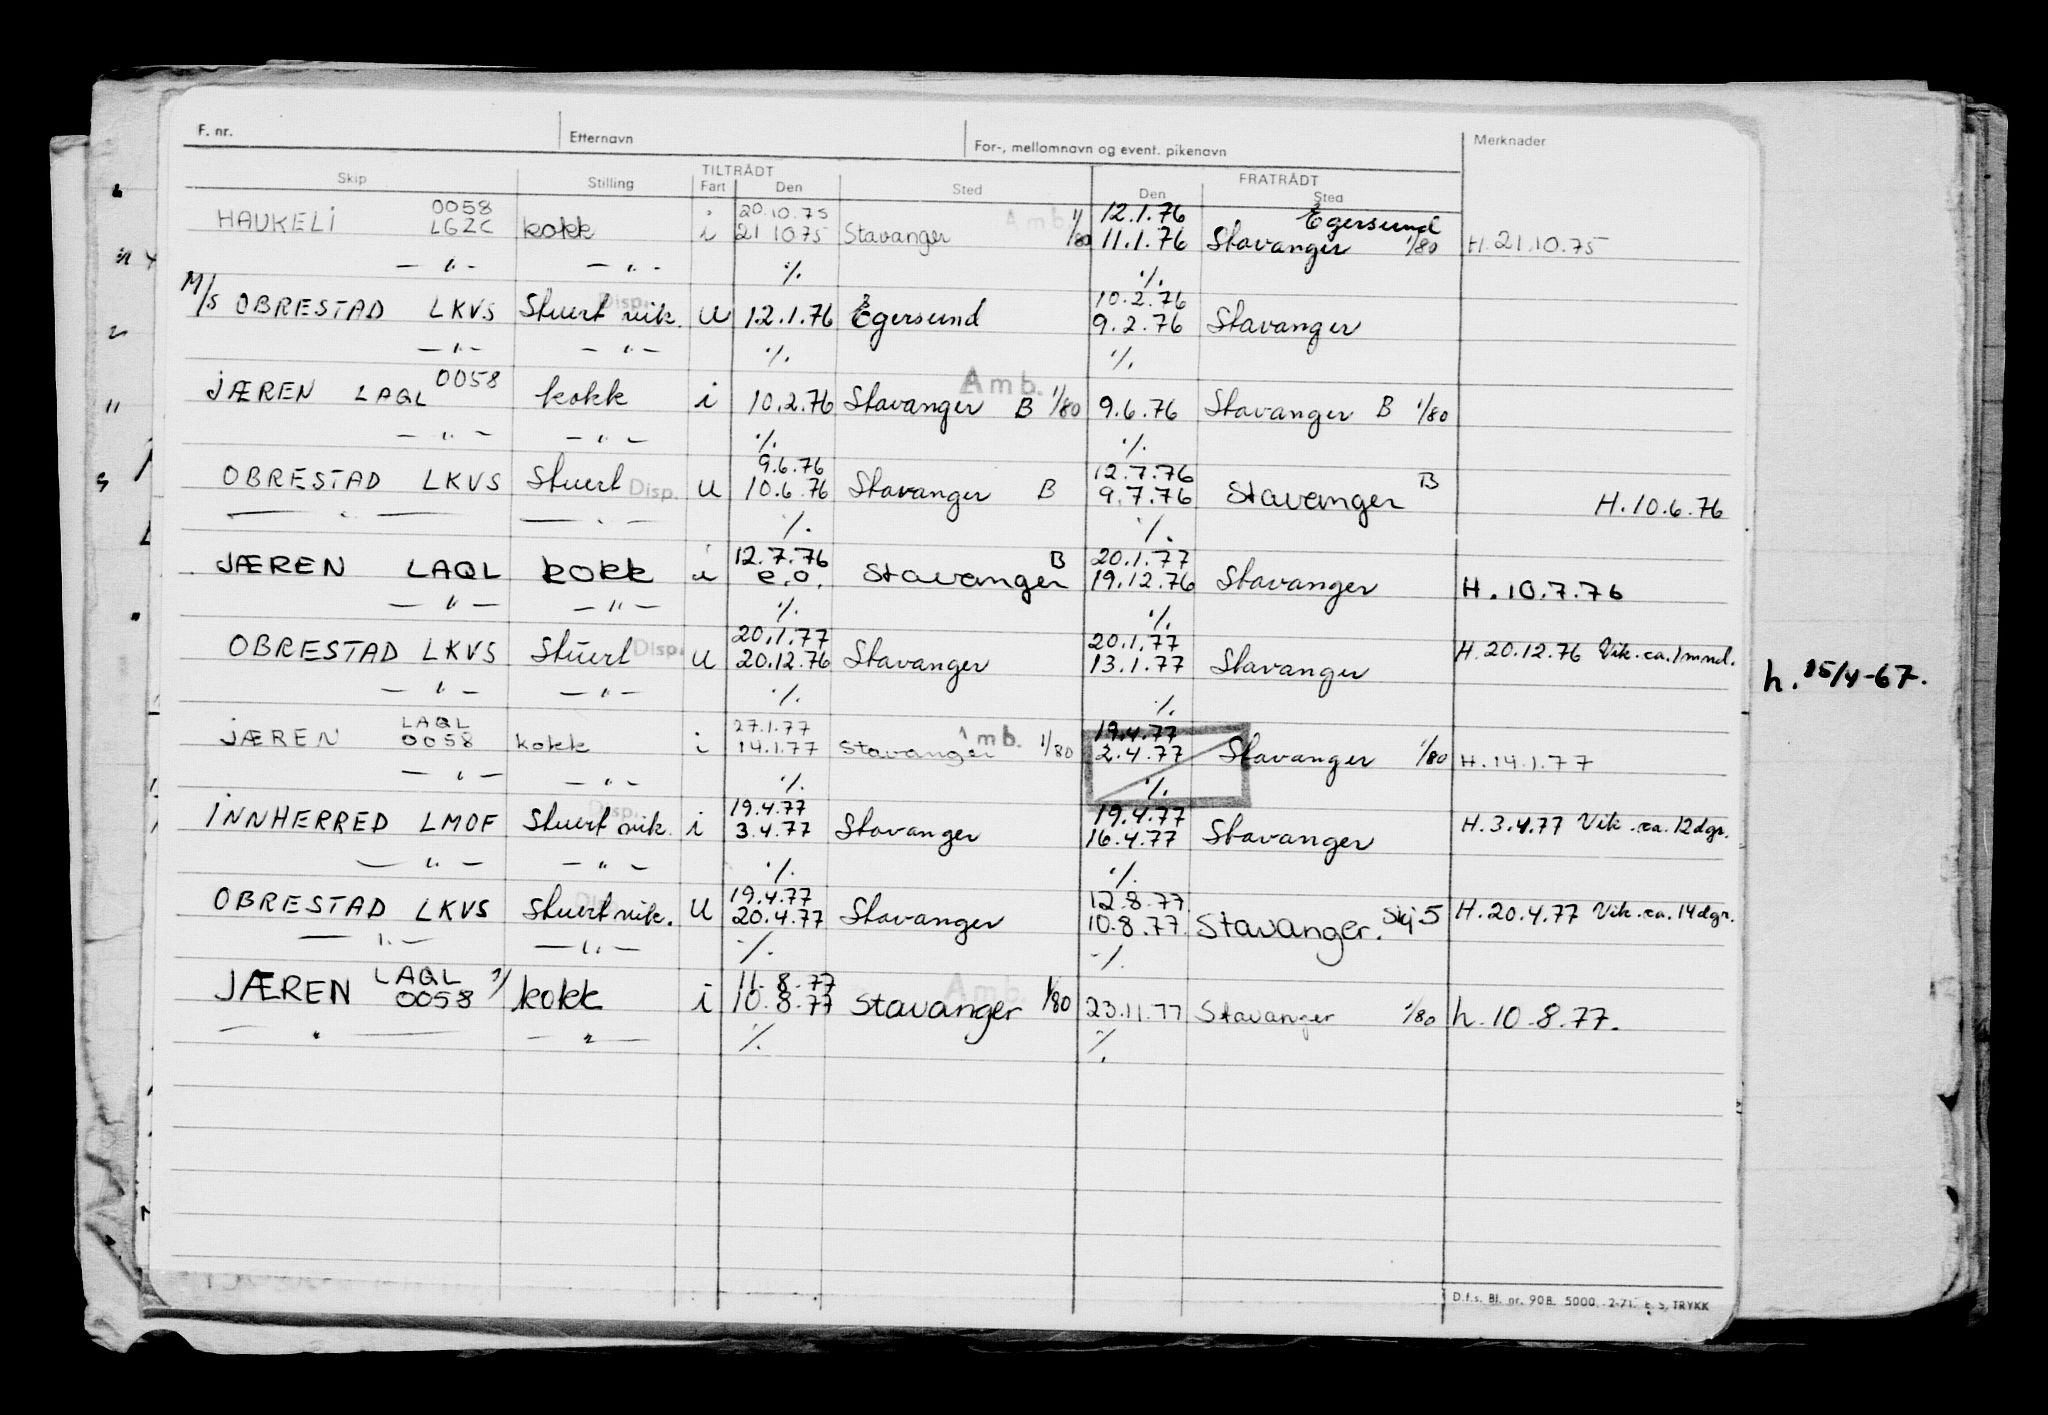 F. nr. Etternavn For-, mellomnavn og event. pikenavn Merknader
TILTRÅDT FRATRÅDT
Skip Stilling Fart Den Sted Den Sted
0058 i 20.10.75 Amb. 1/ 12.1.76 Egersund
HAUKELI LGZC kokk i 21 10 75 Stavanger 1/80 11.1.76 Stavanger 1/80 H. 21.10.75
— " — — " — %. %.
Disp. 10.2.76
M/S OBRESTAD LKVS Stuert vik. U 12.1.76 Egersund 9.2.76 Stavanger
— " — — " — %. %.
0058 Amb.
JÆREN LAQL kokk i 10.2.76 Stavanger B 1/80 9.6.76 Stavanger B 1/80
— " — — " — %. %.
9.6.76 12.7.76 B
OBRESTAD LKVS Stuert Disp. U 10.6.76 Stavanger B 9.7.76 Stavanger H. 10.6.76
— " — — " — %. %.
12.7.76 B 20.1.77
JÆREN LAQL kokk i e.o. Stavanger 19.12.76 Stavanger H. 10.7.76
— " — — " — %. %.
20.1.77 20.1.77
OBRESTAD LKVS Stuert Disp. U 20.12.76 Stavanger 13.1.77 Stavanger H. 20.12.76 Vik. ca. 1 mnd.
h. 15/4-67.
— " — — " — %. %.
LAQL 27.1.77 Amb. 19.4.77
JÆREN 0058 kokk i 14.1.77 Stavanger 1/80 2.4.77 Stavanger 1/80 H. 14.1.77
— " — — " — %. %.
Disp. 19.4.77 19.4.77
INNHERRED LMOF Stuert vik. i 3.4.77 Stavanger 16.4.77 Stavanger H. 3.4.77 Vik. ca. 12 dgr.
— " — — " — %. %.
Disp. 19.4.77 12.8.77
OBRESTAD LKVS Stuert vik. U 20.4.77 Stavanger 10.8.77. Stavanger. Skj 5 H. 20.4.77 Vik. ca. 14 dgr.
— " — — " — %. %.
LAQL 11.8.77 Amb.
JÆREN 0058 kokk i 10.8.77 Stavanger 1/80 23.11.77 Stavanger 1/80 h. 10.8.77.
— " — — " — %. %.
D.f.s. Bl. nr. 90B. 5000. 2-71. E. S. TRYKK